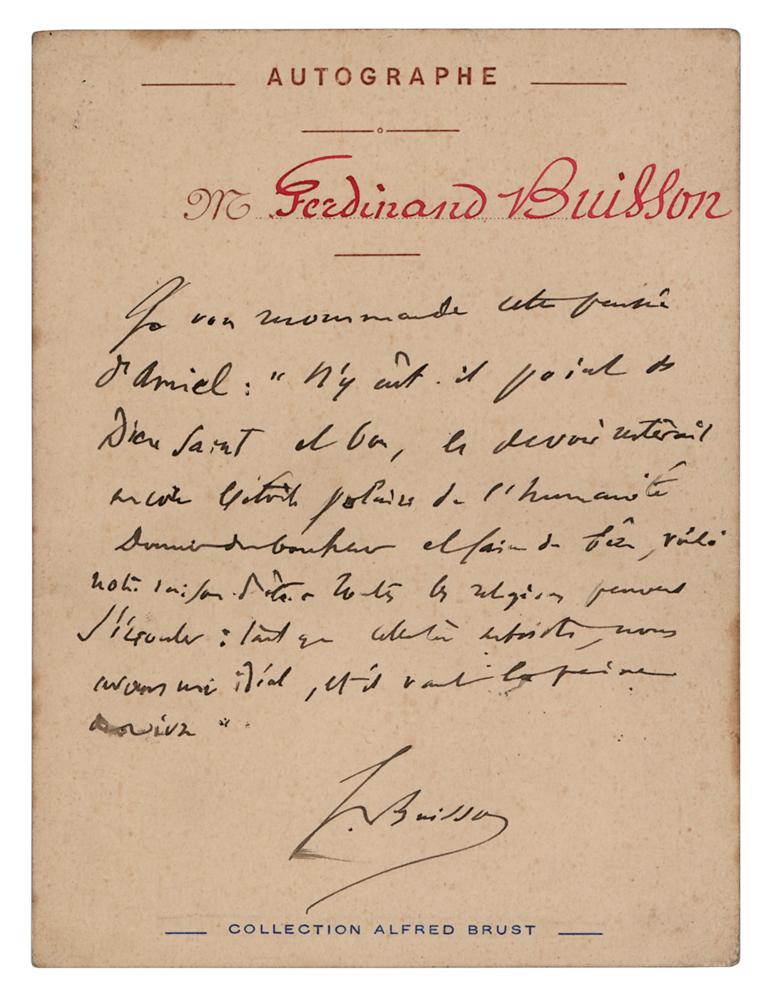 AUTOGRAPHE
M Ferdinand Buisson
Je vous recommande cette pensée
d'Amiel : " N'y eût-il point de
Dieu saint et bon, le devoir resterait
encore l'étoile polaire de l'humanité
Donner du bonheur et faire du bien, voilà
notre raison d'être. Toutes les religions peuvent
s'écrouler : tant que celle-là subsiste, nous
avons un idéal, et il vaut la peine
de vivre "
F. Buisson
COLLECTION ALFRED BRUST